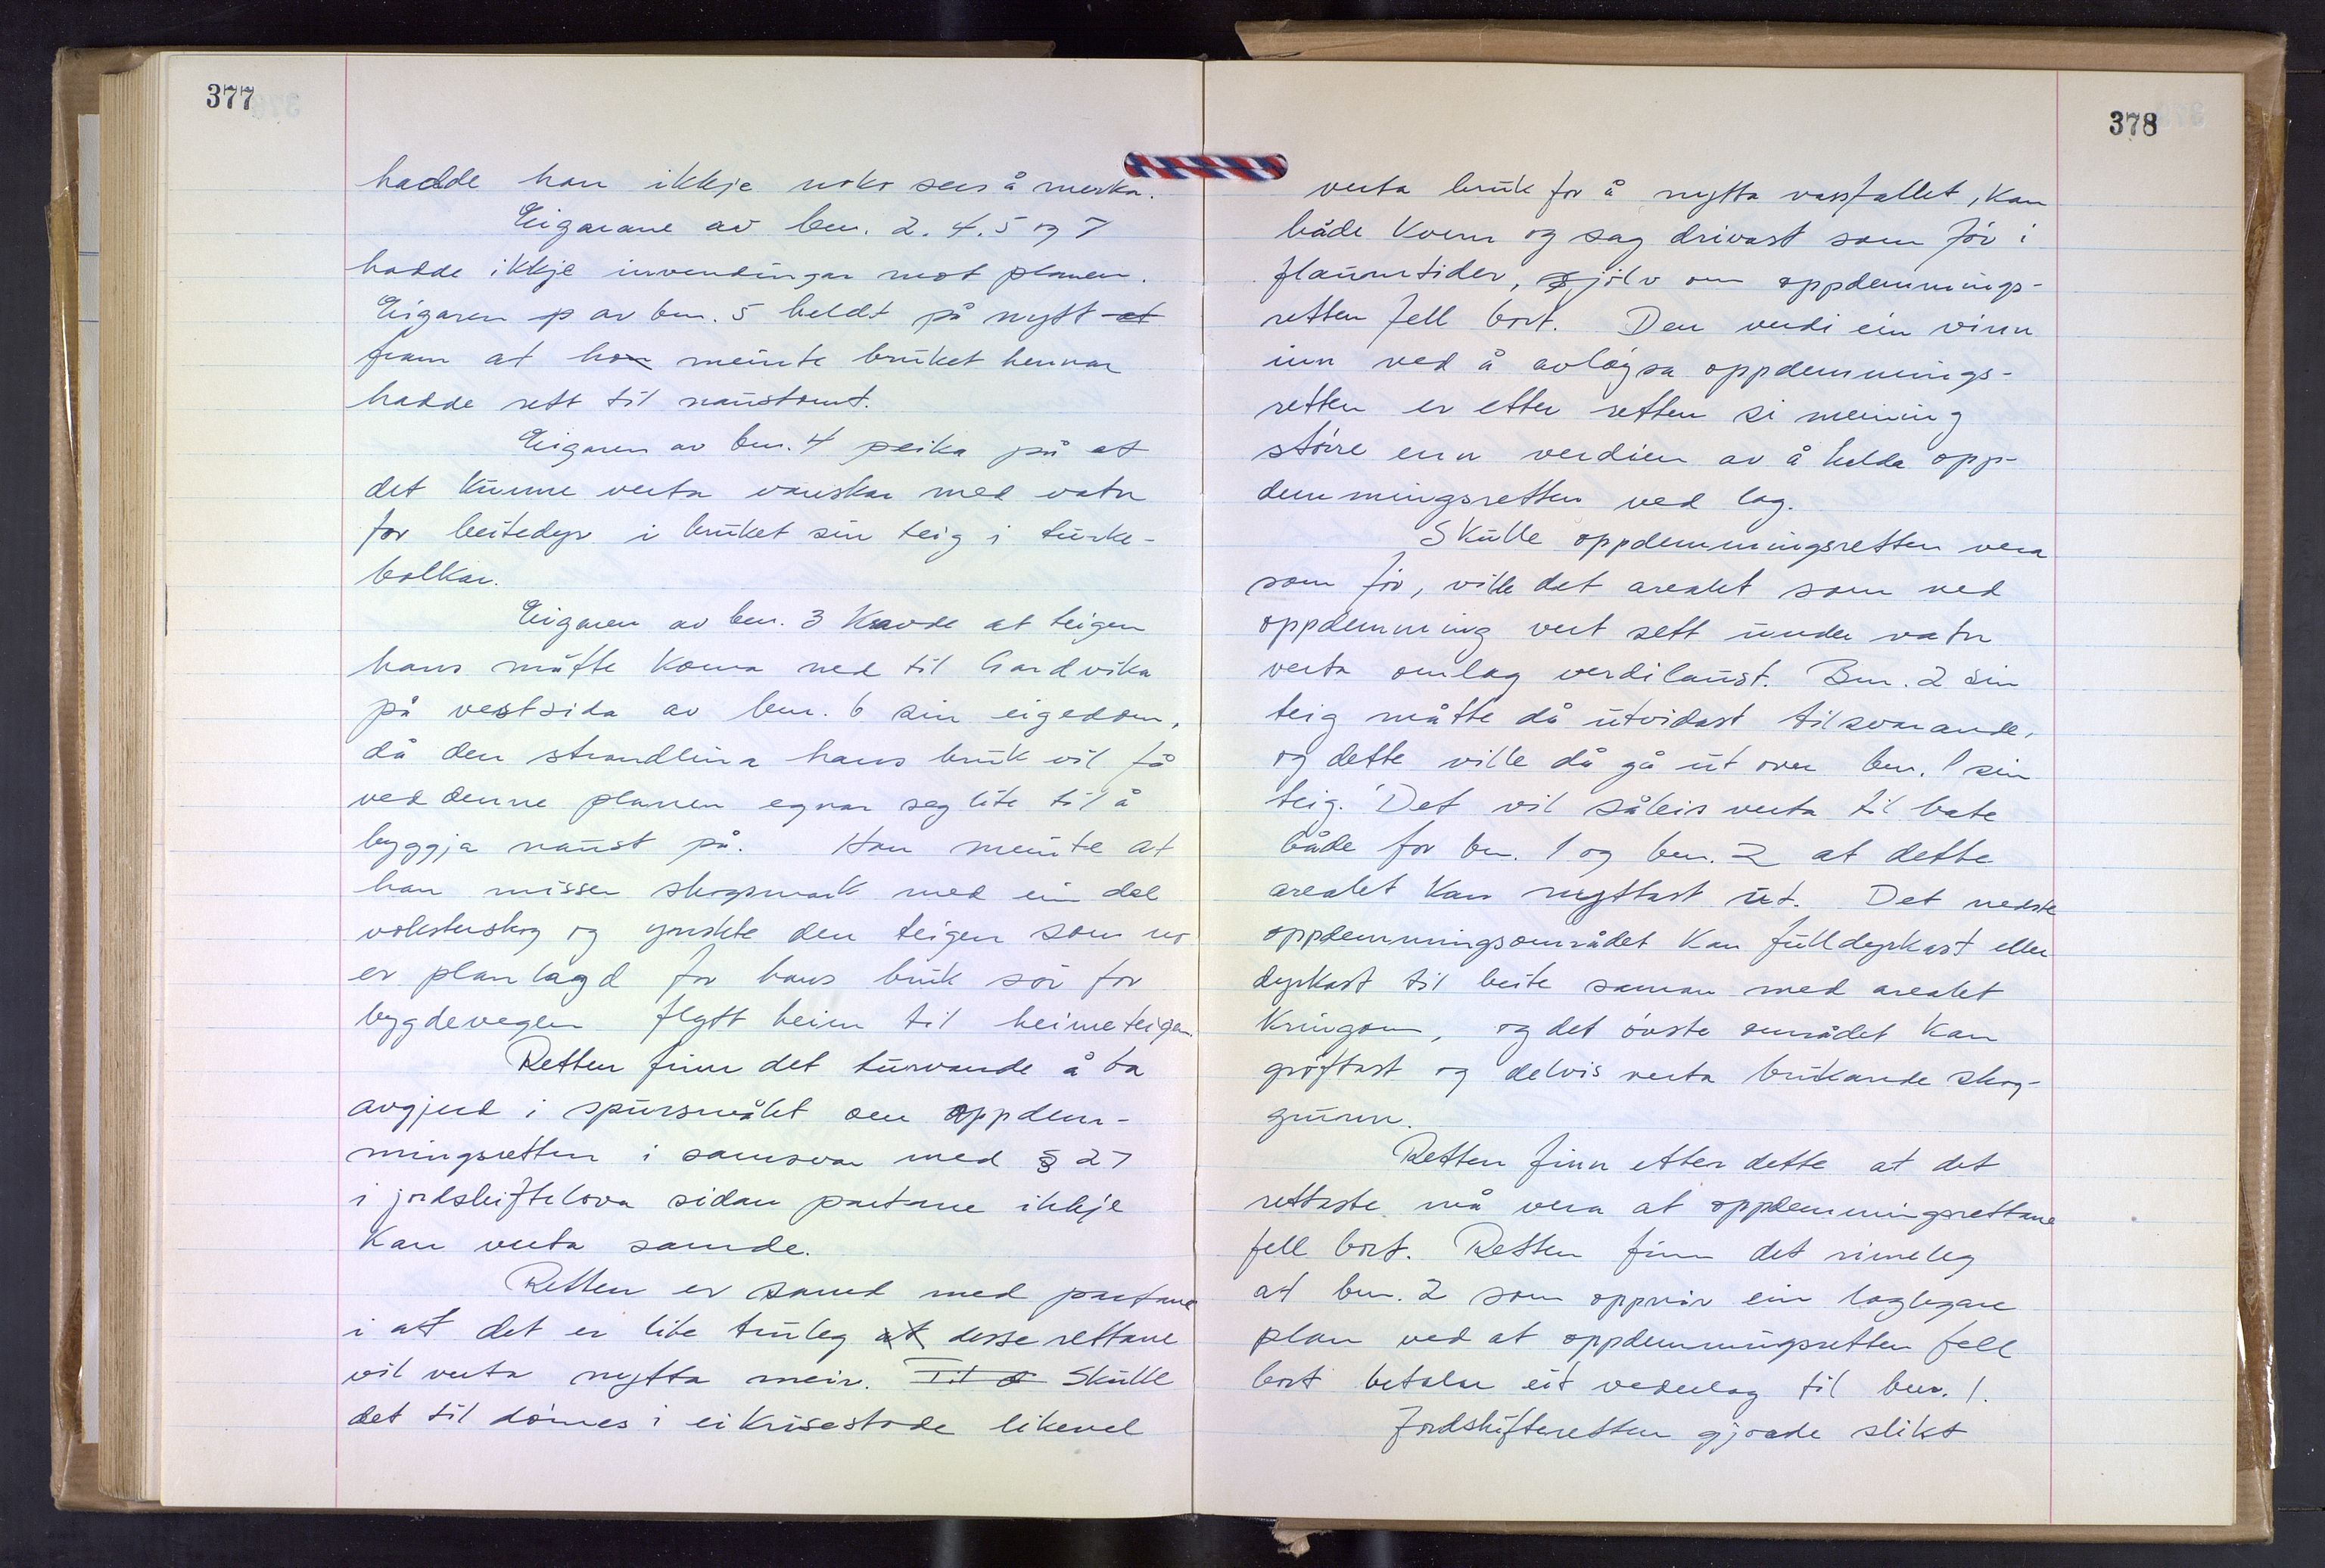 377
hadde han ikkje noko sers å merka.
Eigarane av bnr. 2. 4. 5 og 7
hadde ikkje invendingar mot planen.
Eigaren p av bnr. 5 heldt på nytt at
fram at hon meinte bruket hennar
hadde rett til naustomt.
Eigaren av bnr. 4 peika på at
det kunne verta vanskar med vatn
for beitedyr i bruket sin teig i turke-
bolkar.
Eigaren av bnr. 3 kravde at teigen
hans måtte koma ned til Gardvika
på vestsida av bnr. 6 sin eigedom,
då den strandlina hans bruk vil få
ved denne planen egnar seg lite til å
byggja naust på. Han meinte at
han misser skogsmark med ein del
voksterskog og ynskte den teigen som no
er planlagd for hans bruk sør for
bygdevegen flytt heim til heimeteigen.
Retten finn det turvande å ta
avgjerd i spursmålet om oppdem-
mingsretten i samsvar med § 27
i jordskiftelova sidan partane ikkje
kan verta samde.
Retten er samd med partane
i att det er lite truleg at desse rettane
vil verta nytta meir. Til d Skulle
det til dømes i ei krisestode likevel
378
verta bruk for å nytta vassfallet, kan
både kvern og sag drivast som før i
flaumtider, sjølv om oppdemmings-
retten fell bort. Den verdi ein vinn
inn ved å avløysa oppdemmings-
retten er etter retten si meining
større enn verdien av å halda opp-
demmingsretten ved lag.
Skulle oppdemmingsretten vera
som før, ville det arealet som ved
oppdemming vert sett under vatn
verta omlag verdilaust. Bnr. 2 sin
teig måtte då utvidast tilsvarande,
og dette ville då gå ut over bnr. 1 sin
teig. Det vil såleis verta til bate
både for bnr. 1 og bnr. 2 at dette
arealet kan nyttast ut. Det nedste
oppdemmingsområdet kan fulldyrkast eller
dyrkast til beite saman med arealet
kringom, og det øvste området kan
grøftast og delvis verta brukande skog-
grunn.
Retten finn etter dette at det
rettaste må vera at oppdemmingsrettane
fell bort. Retten finn det rimeleg
at bnr. 2 som oppnår ein laglegare
plan ved at oppdemmingsretten fell
bort betalar eit vederlag til bnr. 1.
Jordskifteretten gjorde slikt